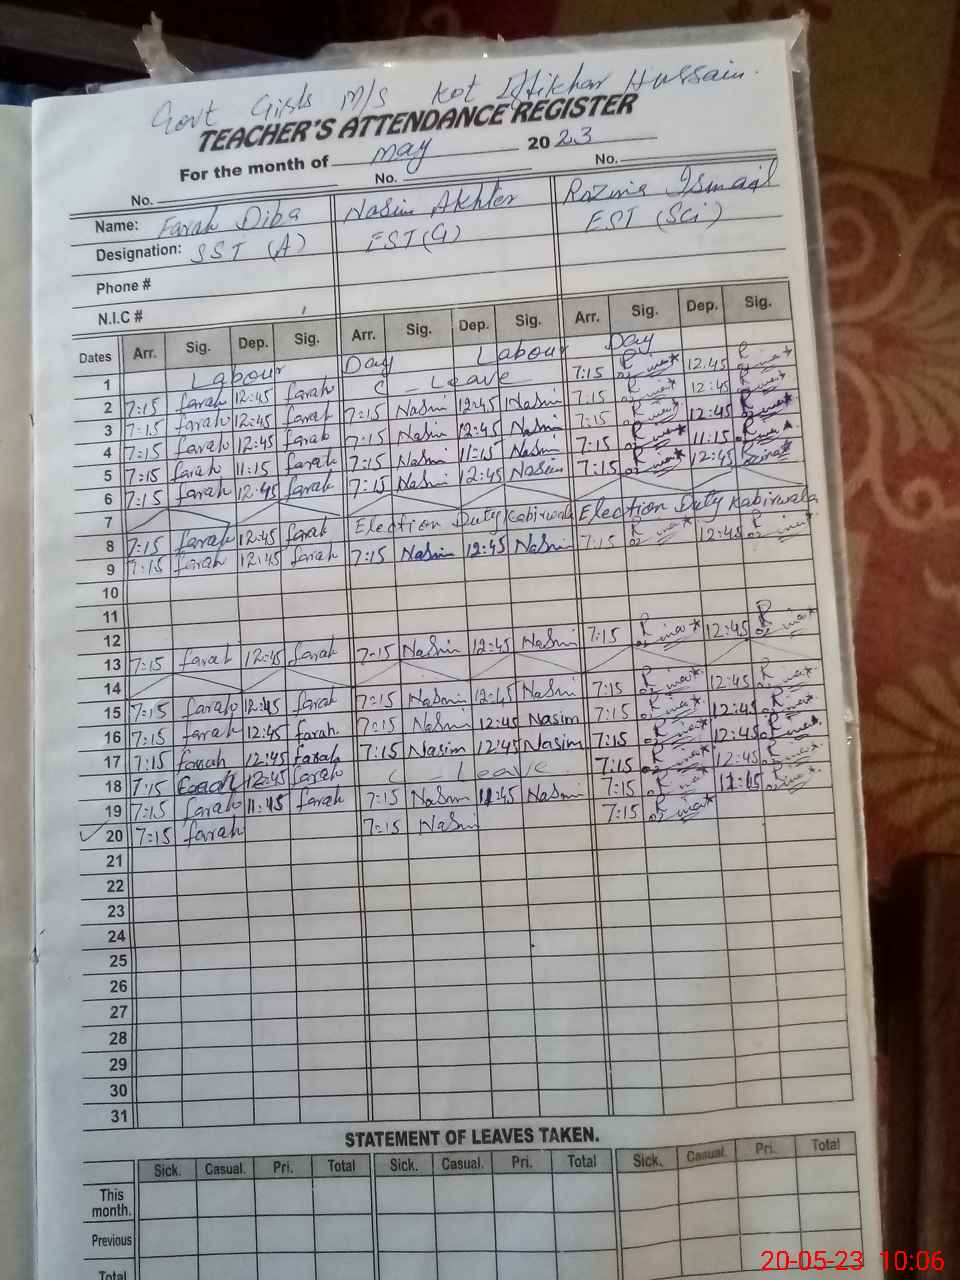 Govt Girls M/S Kot Iftikhar Hussain.
TEACHER'S ATTENDANCE REGISTER
For the month of May 2023
No. No. No.
Name: Farah Diba Nasim Akhter Rozina Ismail
Designation: SST (A) EST(G) EST (Sci)
Phone #
N.I.C #
Dates Arr. Sig. Dep. Sig. Arr. Sig. Dep. Sig. Arr. Sig. Dep. Sig.
1 Labour Day Labour Day
2 7:15 farah 12:45 farah C - Leave 7:15 12:45
3 7:15 farah 12:45 farah 7:15 Nasim 12:45 Nasim 7:15 12:45
4 7:15 farah 12:45 farah 7:15 Nasim 12:45 Nasim 7:15 12:45
5 7:15 farah 11:15 farah 7:15 Nasim 11:15 Nasim 7:15 11:15
6 7:15 farah 12:45 farah 7:15 Nasim 12:45 Nasim 7:15 12:45
7
8 7:15 farah 12:45 farah Election Duty Kabirwala Election Duty Kabirwala
9 7:15 farah 12:45 farah 7:15 Nasim 12:45 Nasim 7:15 12:45
10
11
12
13 7:15 farah 12:45 farah 7:15 Nasim 12:45 Nasim 7:15 12:45
14
15 7:15 farah 12:45 farah 7:15 Nasim 12:45 Nasim 7:15 12:45
16 7:15 farah 12:45 farah. 7:15 Nasim 12:45 Nasim 7:15 12:45
17 7:15 farah 12:45 farah 7:15 Nasim 12:45 Nasim 7:15 12:45
18 7:15 farah 12:45 farah C - Leave 7:15 12:45
19 7:15 farah 11:45 farah 7:15 Nasim 11:45 Nasim 7:15 11:45
20 7:15 farah 7:15 Nasim 7:15
21
22
23
24
25
26
27
28
29
30
31
STATEMENT OF LEAVES TAKEN.
Sick. Casual. Pri. Total Sick. Casual. Pri. Total Sick. Casual. Pri. Total
This
month.
Previous
Total
20-05-23 10:06